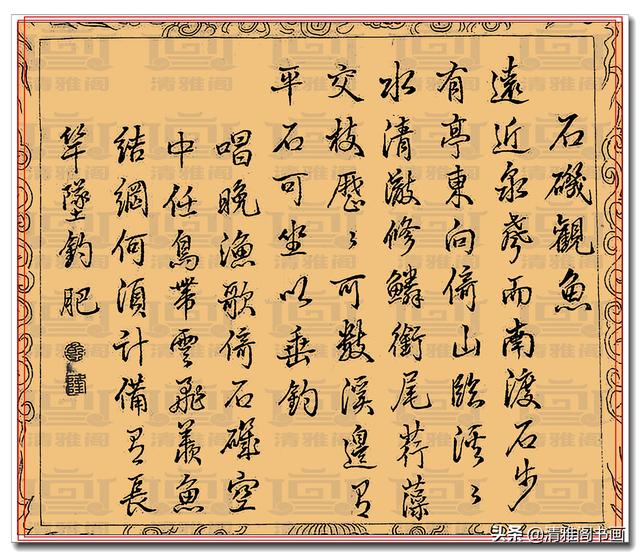 石磯觀魚
遠近泉聲而南渡石步
有亭東向倚山臨溪〻
水清澈修鱗銜尾荇藻
交枝歷〻可數溪邊有
平石可坐以垂釣
唱晚漁歌倚石磯空
中任鳥帶雲飛羨魚
結網何須計備有長
竿墜釣肥
清雅阁
头条@清雅阁书画